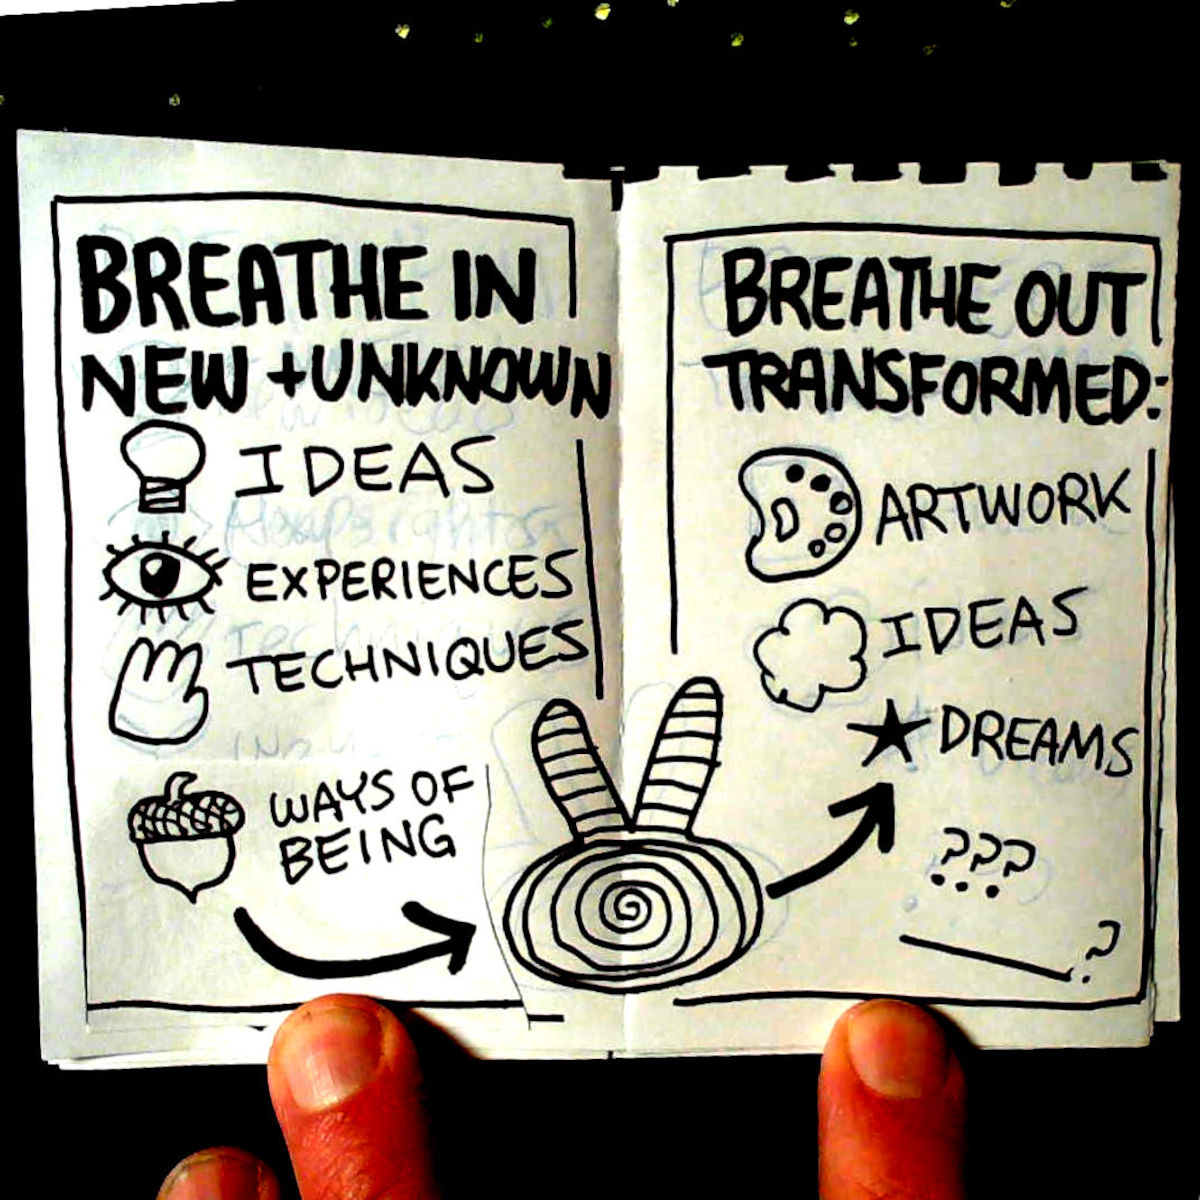 BREATHE IN
NEW + UNKNOWN
IDEAS
EXPERIENCES
TECHNIQUES
WAYS OF
BEING
BREATHE OUT
TRANSFORMED:
ARTWORK
IDEAS
DREAMS
???
...
?